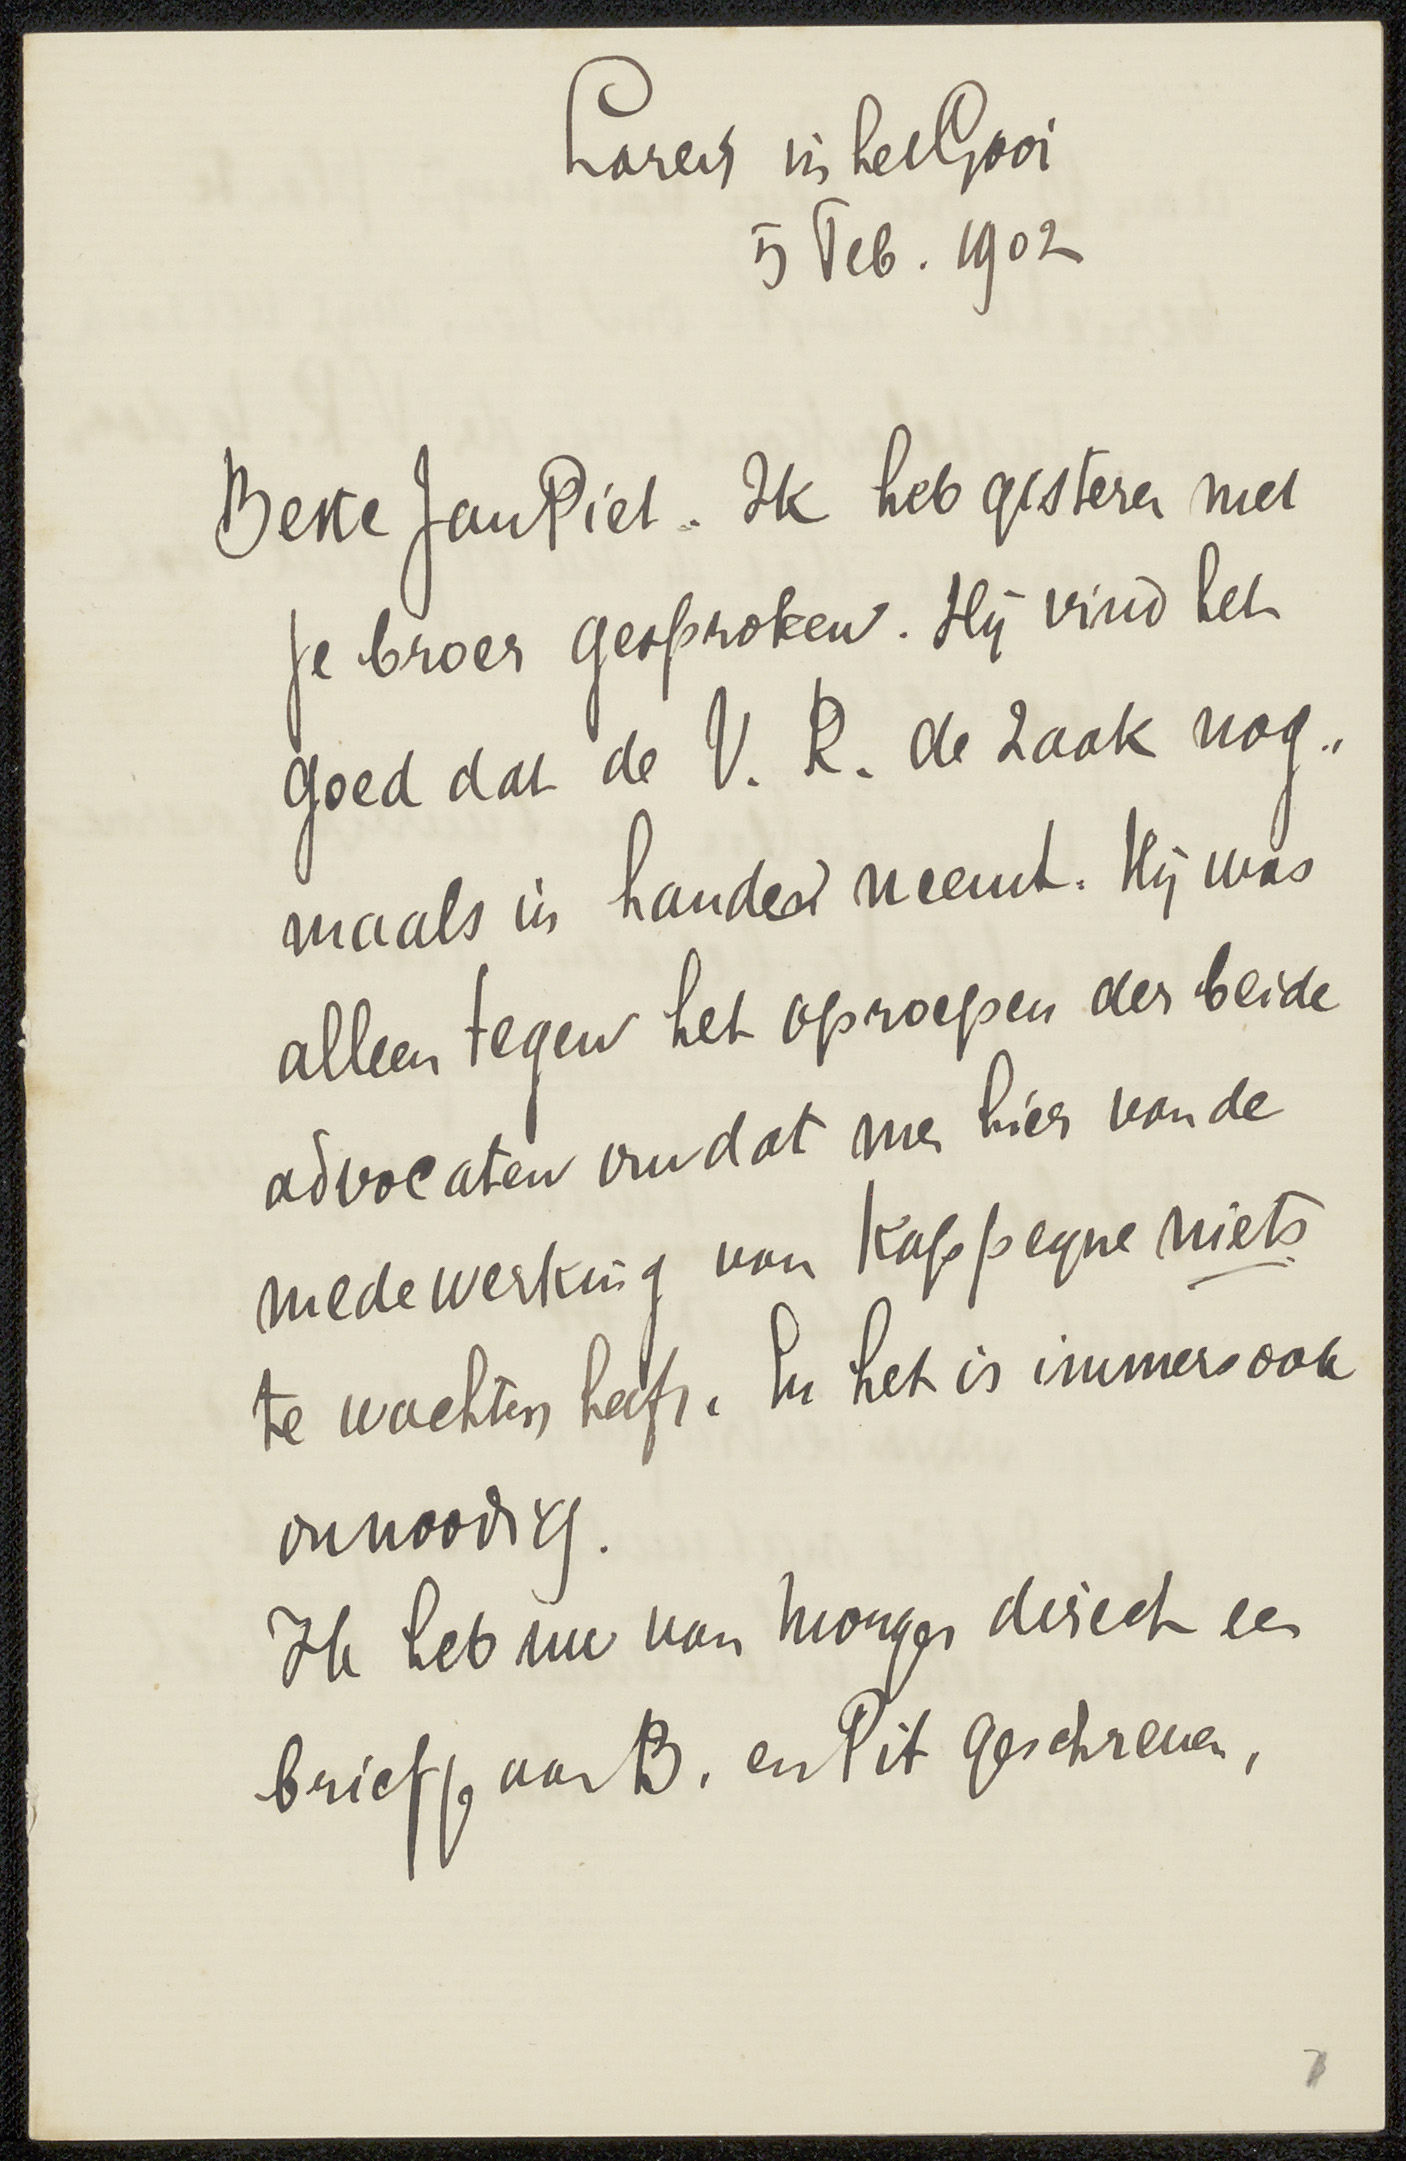 Laren in het Gooi
5 Feb. 1902
Beste Jan Piet. Ik heb gisteren met
je broer gesproken. Hij vind het
goed dat de V. R. de zaak nog„
maals in handen neemt. Hij was
alleen tegen het oproepen der beide
advocaten omdat men hier van de
medewerking van Kappeyne niets
te wachten heeft. En het is immers ook
onnoodig.
Ik heb nu van morgen direct een
briefje aan B. en Pit geschreven,